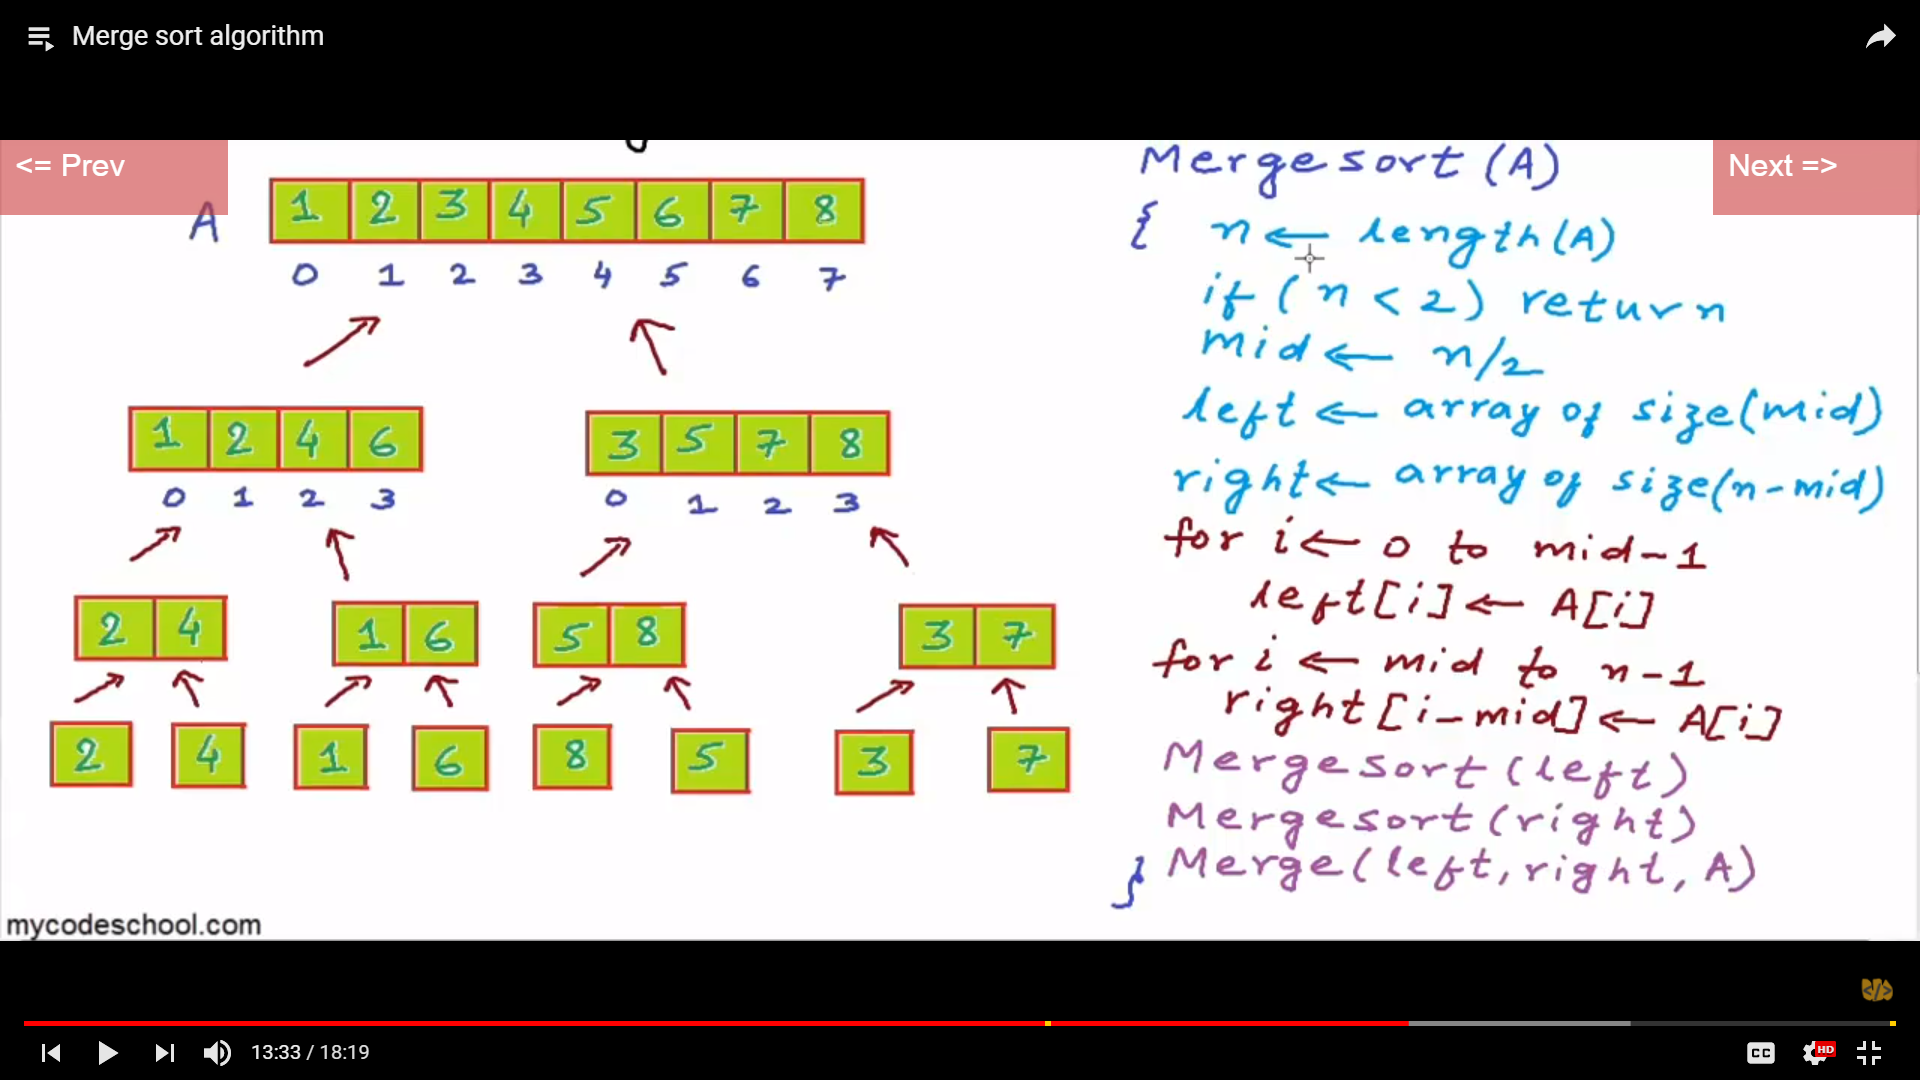 Merge sort algorithm
<= Prev
Next =>
A
1 2 3 4 5 6 7 8
0 1 2 3 4 5 6 7
1 2 4 6
3 5 7 8
0 1 2 3
0 1 2 3
2 4
1 6
5 8
3 7
2 4 1 6 8 5 3 7
Mergesort (A)
{ n ← length(A)
if ( n < 2 ) return
mid ← n/2
left ← array of size(mid)
right ← array of size(n-mid)
for i ← 0 to mid-1
left[i] ← A[i]
for i ← mid to n-1
right[i-mid] ← A[i]
Mergesort (left)
Mergesort (right)
} Merge(left, right, A)
mycodeschool.com
13:33 / 18:19
CC
HD